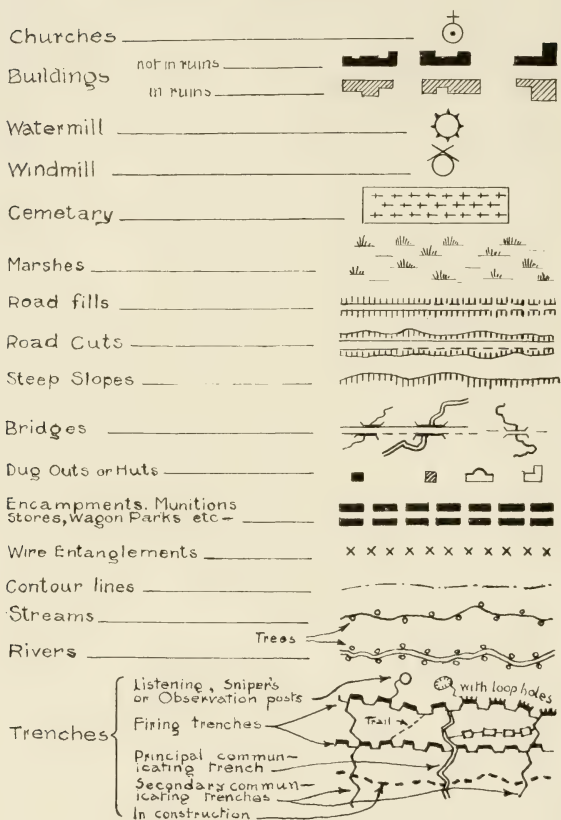 Churches
Buildings
not in ruins
in ruins
Watermill
Windmill
Cemetary
Marshes
Road fills
Road Cuts
Steep Slopes
Bridges
Dug Outs or Huts
Encampments. Munitions
Stores, Wagon Parks etc -
Wire Entanglements
Contour lines
Streams
Trees
Rivers
Trenches
Listening, Sniper's
or Observation posts
with loop holes
Firing trenches
Trail
Principal commun-
icating trench
Secondary commun-
icating trenches
In construction